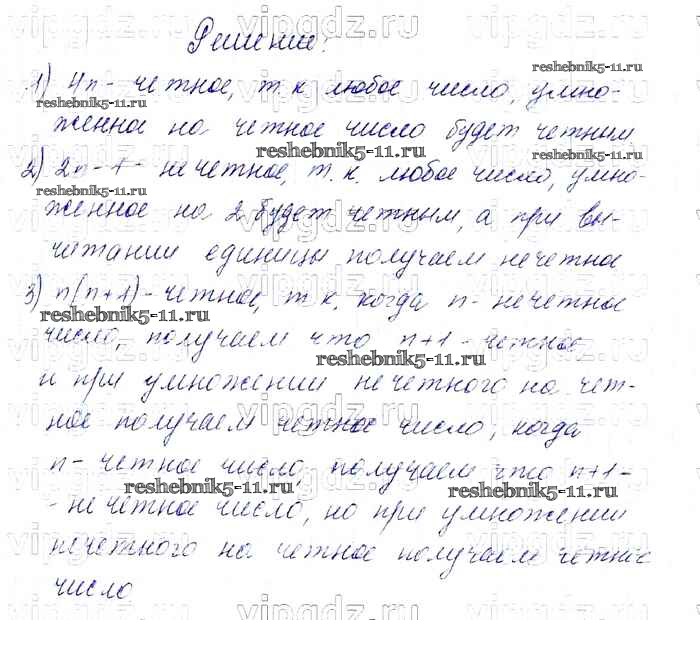 Решение:
1) 4n - четное, т.к любое число, умно-
женное на четное число будет четным
2) 2n - 1 - нечетное, т.к. любое число, умно-
женное на 2 будет четным, а при вы-
читании единицы получаем нечетное
3) n(n+1) - четное, т.к. когда n - нечетное
число, получаем что n+1 - четное
и при умножении нечетного на чет-
ное получаем четное число, когда
n - четное число, получаем что n+1 -
- нечетное число, но при умножении
нечетного на четное получаем четное
число
vipgdz.ru vipgdz.ru vipgdz.ru
reshebnik5-11.ru
reshebnik5-11.ru
reshebnik5-11.ru
reshebnik5-11.ru
reshebnik5-11.ru
reshebnik5-11.ru
reshebnik5-11.ru
reshebnik5-11.ru
vipgdz.ru vipgdz.ru vipgdz.ru